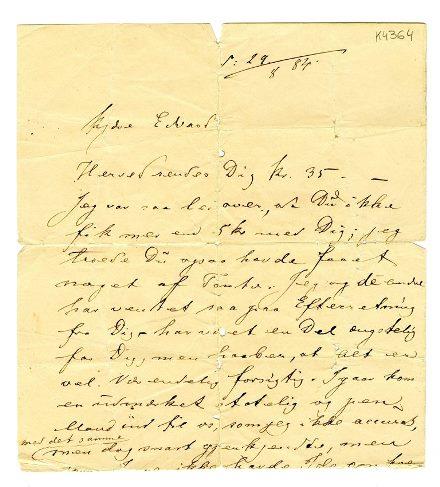 K4364
29/8 84.
Kjære Edvard
Herved sendes Dig kr. 35. —
Jeg var saa lei over, at Du ikke
fik mer end 5 kr med Dig; jeg
troede Du ogsaa havde faaet
noget af Tante. Jeg og de andre
har ventet saa paa Efterretning
fra Dig – har været en Del ængstelig
for Dig, men haaber, at alt er
vel. Vær endelig forsigtig. Igaar kom
en udmærket statelig og pen
Mand ind til os, som jeg ikke accurat,
med det samme
men dog snart gjenkjendte, men
ikke havde